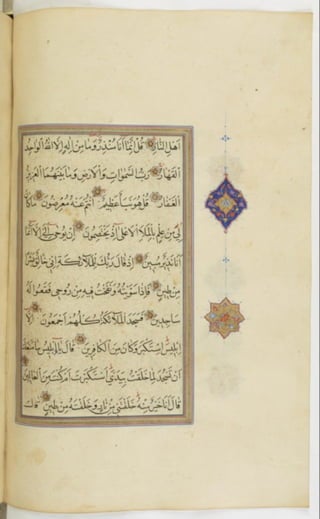 اَهْلِ النَّارِ قُلْ اِنَّمَا اَنَا مُنْذِرٌ وَمَا مِنْ اِلٰهٍ اِلَّا اللّٰهُ الْوَاحِدُ
الْقَهَّارُ رَبُّ السَّمٰوَاتِ وَالْاَرْضِ وَمَا بَيْنَهُمَا الْعَزِيزُ
الْغَفَّارُ قُلْ هُوَ نَبَأٌ عَظِيمٌ اَنْتُمْ عَنْهُ مُعْرِضُونَ مَا كَانَ
لِيَ مِنْ عِلْمٍ بِالْمَلَاِ الْاَعْلٰى اِذْ يَخْتَصِمُونَ اِنْ يُوحٰى اِلَيَّ اِلَّا اَنَّمَا
اَنَا نَذِيرٌ مُبِينٌ اِذْ قَالَ رَبُّكَ لِلْمَلٰئِكَةِ اِنِّي خَالِقٌ بَشَرًا
مِنْ طِينٍ فَاِذَا سَوَّيْتُهُ وَنَفَخْتُ فِيهِ مِنْ رُوحِي فَقَعُوا لَهُ
سَاجِدِينَ فَسَجَدَ الْمَلٰئِكَةُ كُلُّهُمْ اَجْمَعُونَ اِلَّا
اِبْلِيسَ اسْتَكْبَرَ وَكَانَ مِنَ الْكَافِرِينَ قَالَ يَا اِبْلِيسُ مَا مَنَعَكَ
اَنْ تَسْجُدَ لِمَا خَلَقْتُ بِيَدَيَّ اَسْتَكْبَرْتَ اَمْ كُنْتَ مِنَ الْعَالِينَ
قَالَ اَنَا خَيْرٌ مِنْهُ خَلَقْتَنِي مِنْ نَارٍ وَخَلَقْتَهُ مِنْ طِينٍ قَالَ